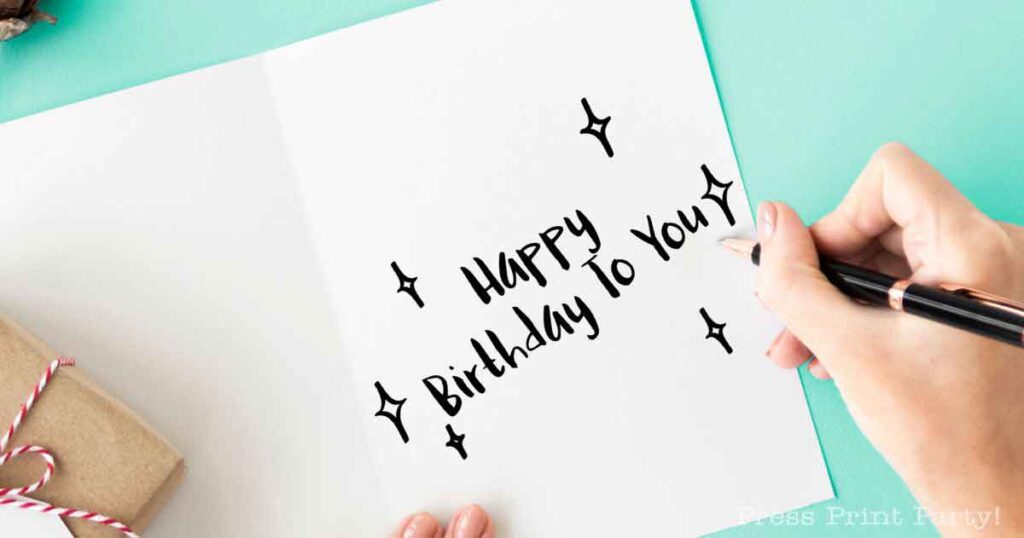 Happy
Birthday To You
Press Print Party!